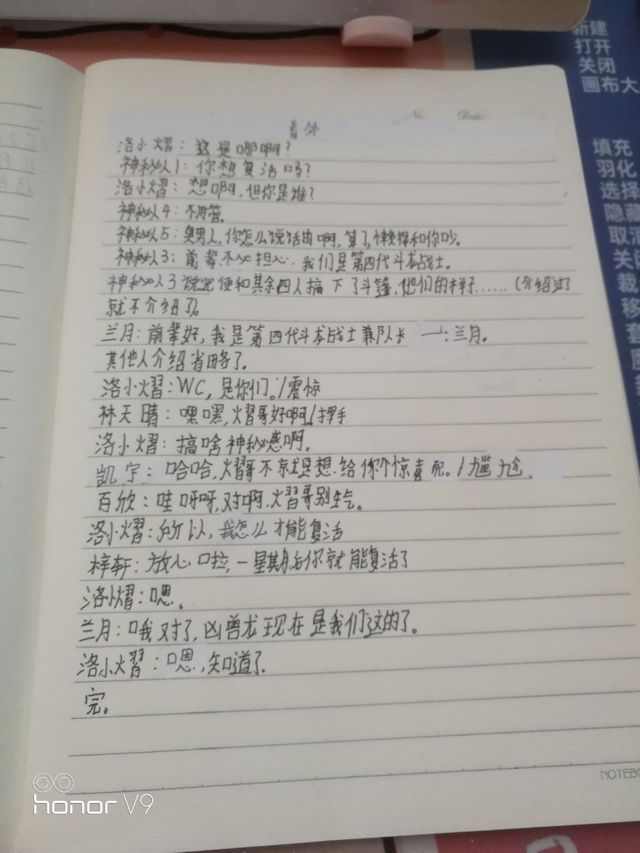 番外
No Date
洛小熠：这是哪啊？
神秘人1：你想复活吗？
洛小熠：想啊，但你是谁？
神秘人4：不用管。
神秘人5：臭男人，你怎么说话的啊，算了，懒得和你吵。
神秘人3：前辈不必担心，我们是第四代斗龙战士。
神秘人3说完便和其余四人摘下了斗篷，他们的样子……（介绍过了
就不介绍了）。
兰月：前辈好，我是第四代斗龙战士兼队长 一：兰月。
其他人介绍省略了。
洛小熠：WC，是你们。/震惊
林天晴：嘿嘿，熠哥好啊/挥手
洛小熠：搞啥神秘感啊。
凯宇：哈哈，熠哥不就是想给你个惊喜呢。/尴尬
百欣：哇呀呀，对啊，熠哥别生气。
洛小熠：所以，我怎么才能复活
梓轩：放心啦，一星期后你就能复活了
洛小熠：嗯。
兰月：哦对了，凶兽龙现在是我们这的了。
洛小熠：嗯，知道了。
完。
NOTEBO
honor V9
新建
打开
关闭
画布大
填充
羽化
选择
隐藏
取消
关闭
裁
移
套